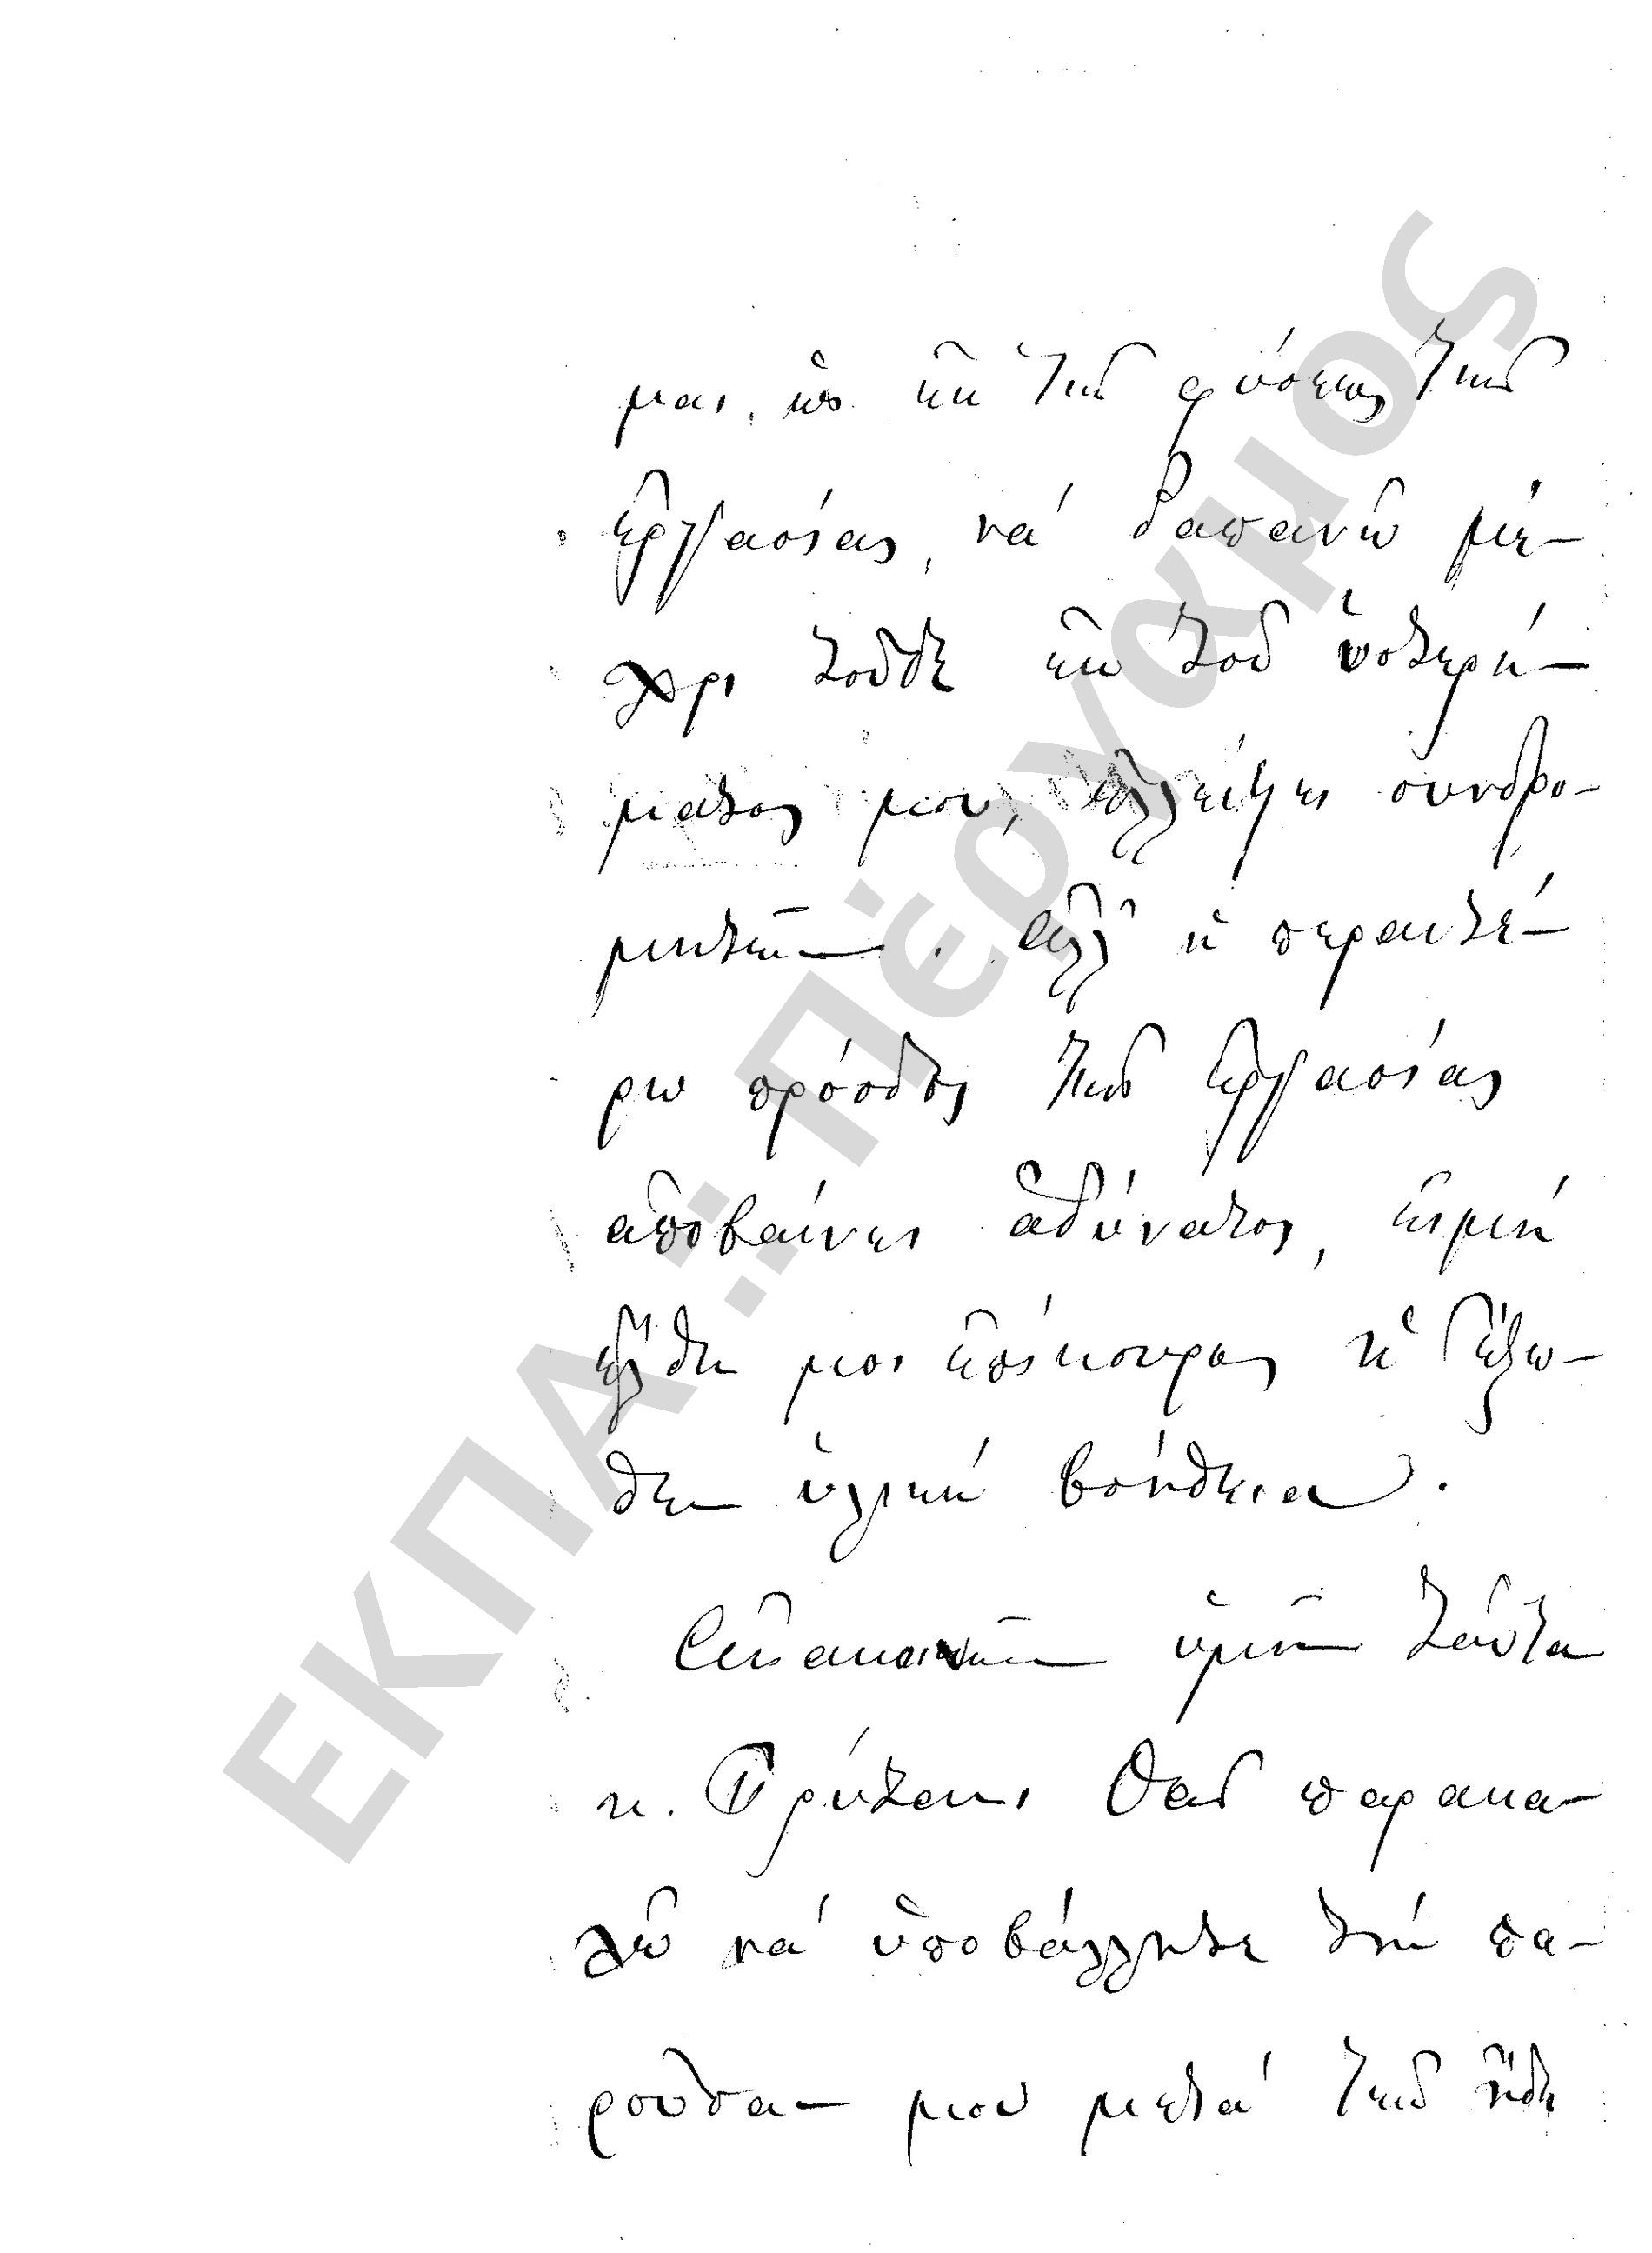 μαι, ὡς ἐκ τῆς φύσεως τῆς
ἐργασίας, νὰ δαπανῶ μέ-
χρι τοῦδε ἐκ τοῦ ὑστερή-
ματος μου, ἐλλείψει συνδρο-
μητῶν. Ἀλλ' ἡ περαιτέ-
ρω πρόοδος τῆς ἐργασίας
ἀποβαίνει ἀδύνατος, εἰ μὴ
ἔλθῃ μοι ἐπίκουρος ἡ ἔξω-
θεν ὑλικὴ βοήθεια.
ὑμῖν ταῦτα
κ. Πρύτανι, Θὰ σᾶς παρακα-
λῶ νὰ ὑποβάλλητε τὴν πα-
ροῦσαν μου μετὰ τῆς ἤδη
ΕΚΠΑ :: Πέργαμος